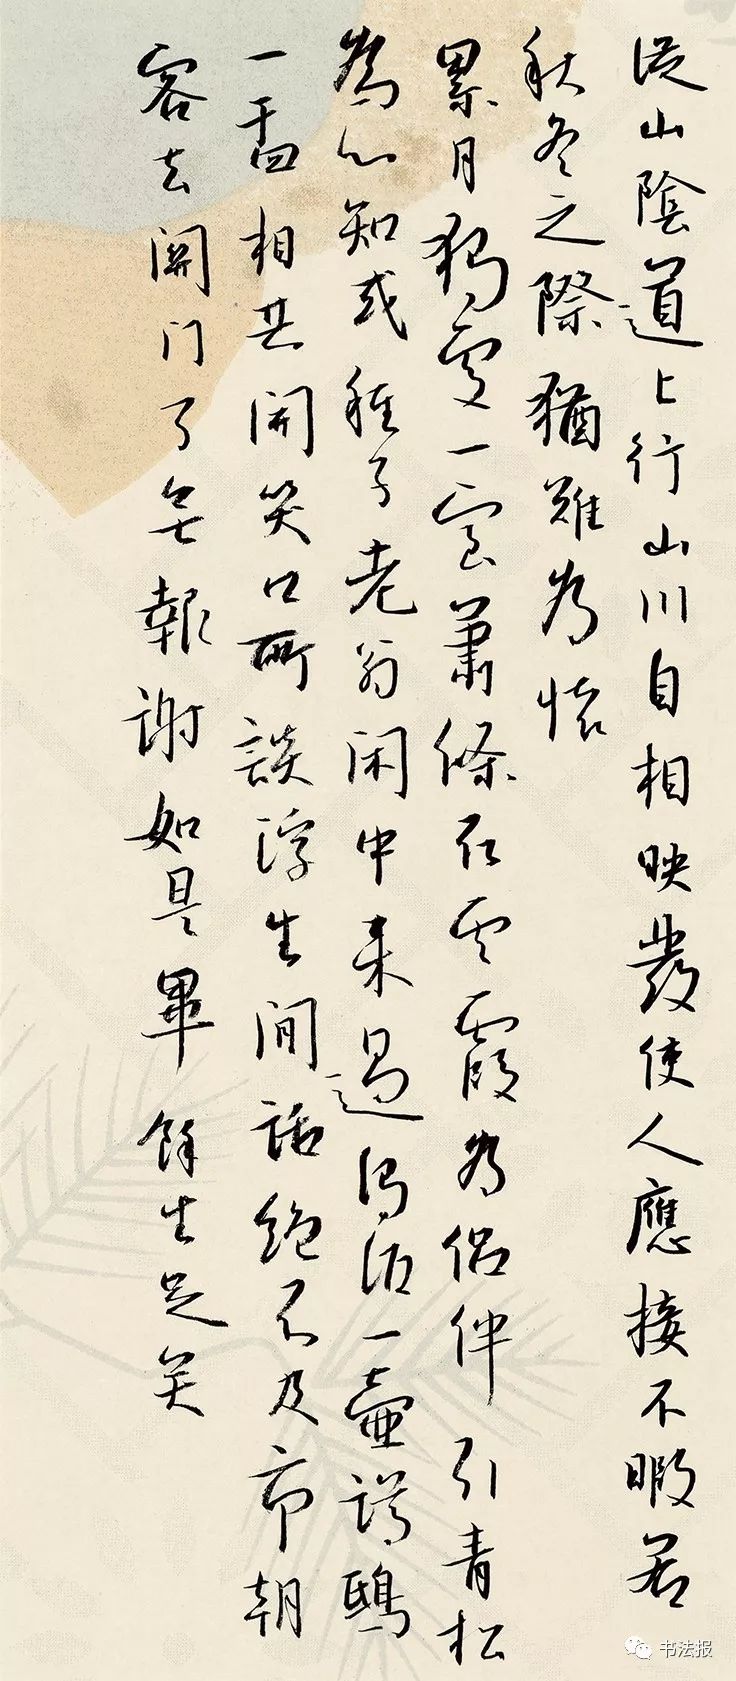 從山陰道上行山川自相映發使人應接不暇若
秋冬之際猶難為懷
累月獨處一室蕭條取雲霞為侶伴引青松
為心知或稚子老翁閑中來過濁酒一壺蹲鴟
一盂相共開笑口所談浮生閒話絕不及市朝
客去關門了無報謝如是畢餘生足矣
书法报